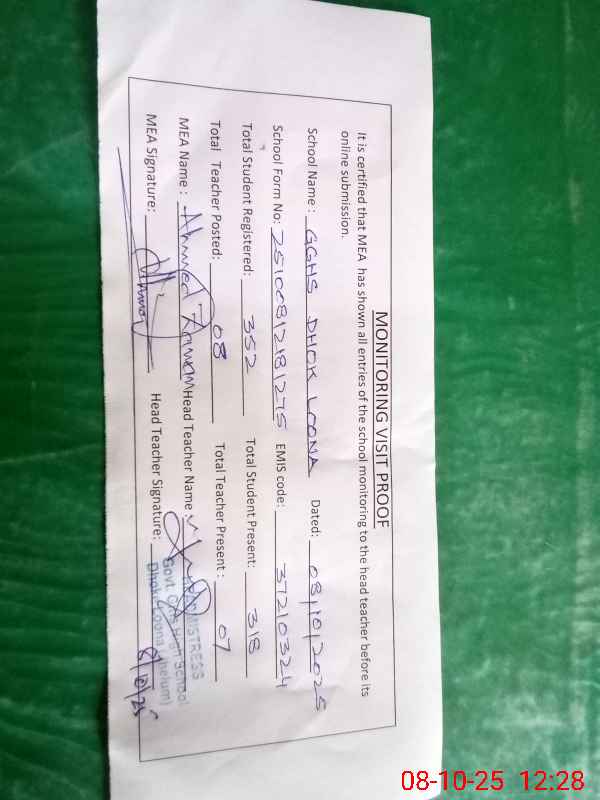 MONITORING VISIT PROOF
It is certified that MEA has shown all entries of the school monitoring to the head teacher before its
online submission.
School Name : GGHS DHOK LOONA Dated: 08/10/2025
School Form No: 25100812181275 EMIS code: 37210324
Total Student Registered: 352 Total Student Present: 318
Total Teacher Posted: 08 Total Teacher Present : 07
MEA Name : Ahmed Zaman Head Teacher Name :
MEA Signature: Head Teacher Signature:
MISTRESS
Govt. High School
Dhok Loona (Jhelum)
8/10/25
08-10-25 12:28